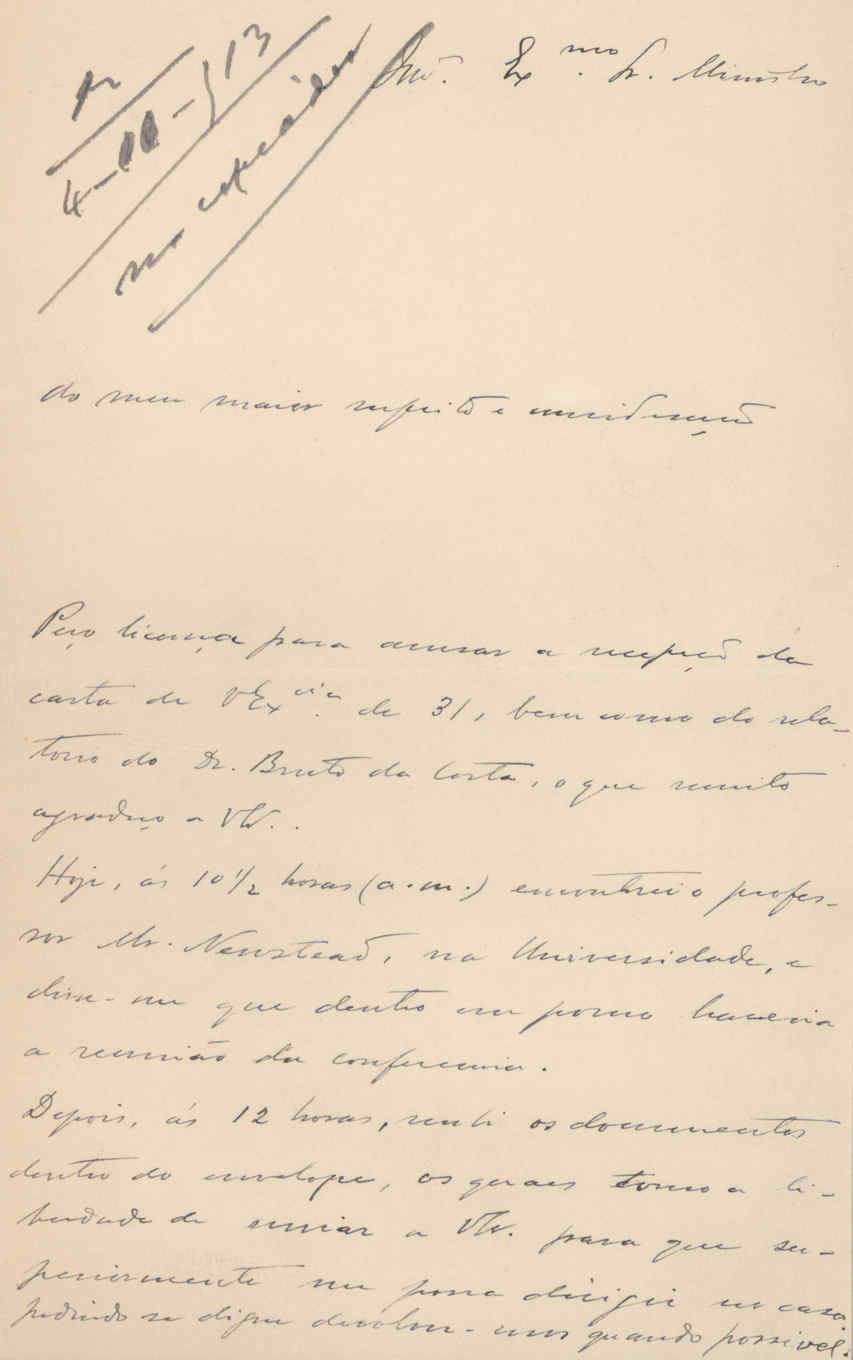 R
4-III-913
Ill.mo Ex.mo Sr. Ministro
do meu maior respeito e consideração
Peço licença para acusar a recepção da
carta de V. Ex.cia de 31, bem como do rela-
torio do Dr. Bruto da Costa, o que muito
agradeço a V.
Hoje, ás 10 1/2 horas (a.m.) encontrei o profes-
sor Mr. Newstead, na Universidade, e
disse-me que dentro em pouco haveria
a reunião da conferencia.
Depois, ás 12 horas, recebi os documentos
dentro do envelope, os quaes tomo a li-
berdade de enviar a V. para que su-
periormente me possa dirigir no caso,
pedindo se digne devolver-mos quando possivel.